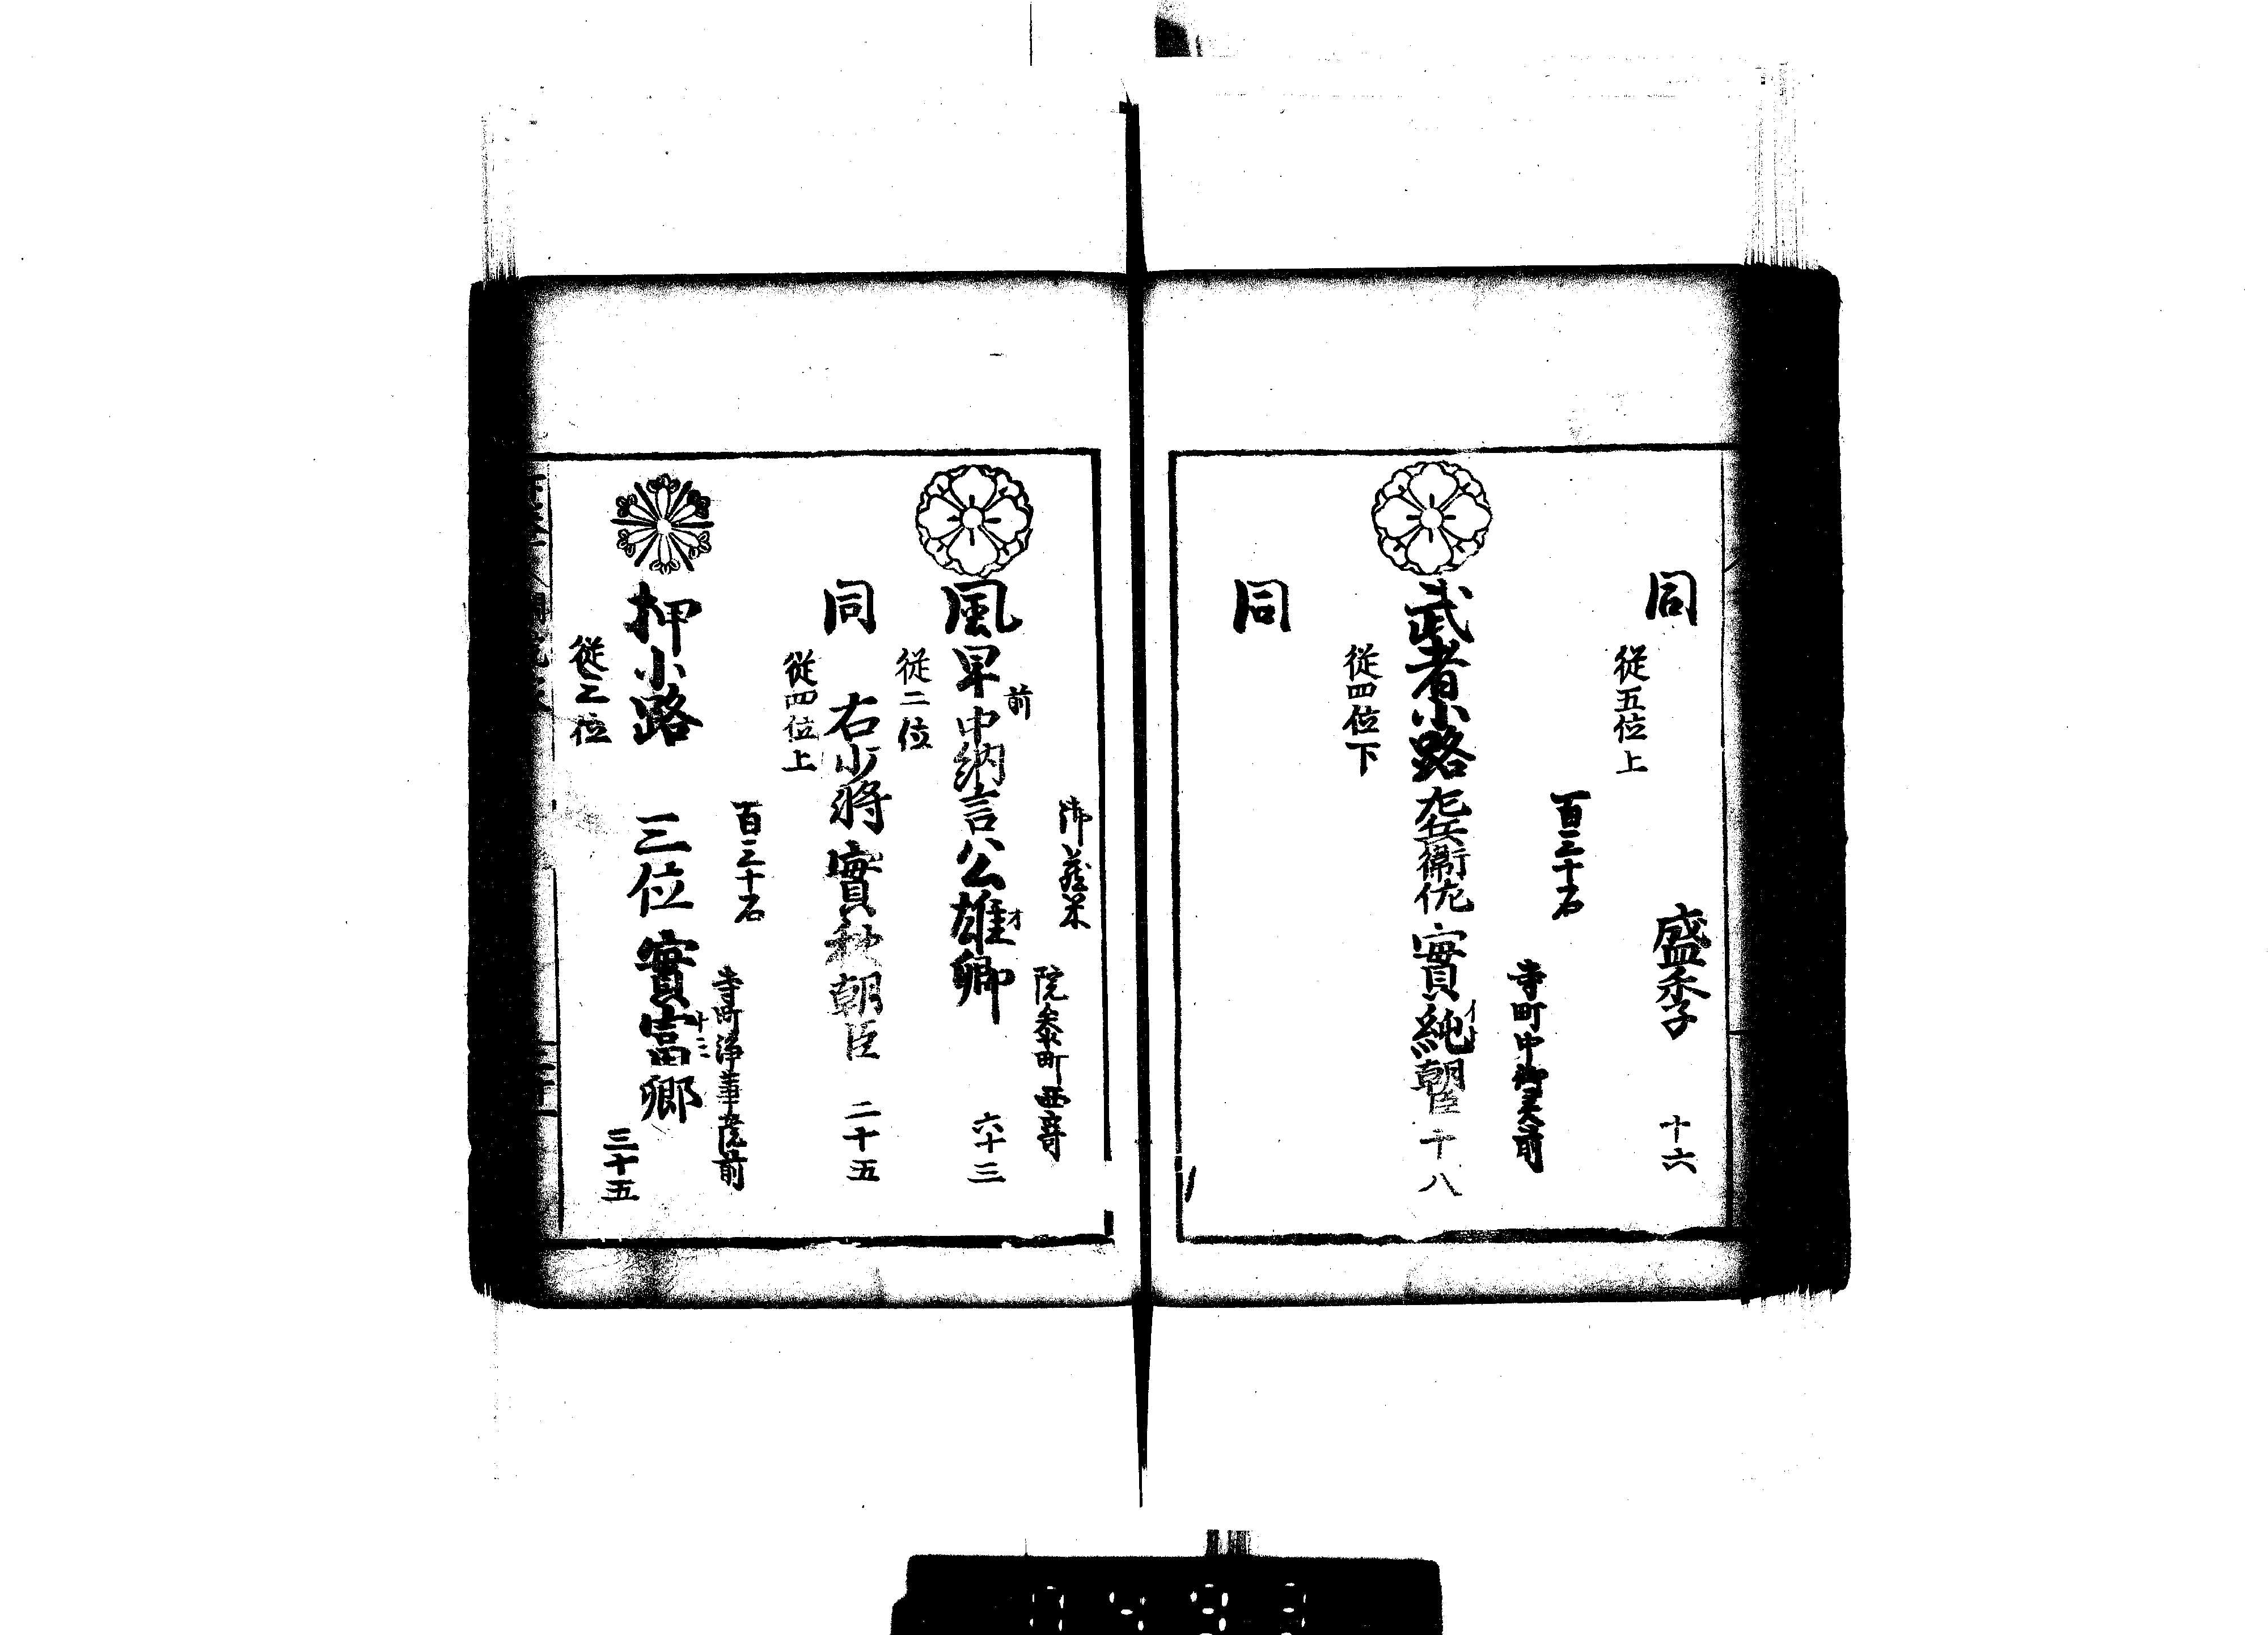 同　盛季　十六
従五位上
百三十石
寺町中御霊前
武者小路左兵衛佐實純朝臣十八
イト
従四位下
同
御蔵米
院参町西寄
風早前中納言公雄卿　六十三
オ
従二位
同　右少将實秋朝臣　二十五
従四位上
百三十石
寺町浄華院前
押小路　三位實富卿　三十五
ナミ
従三位